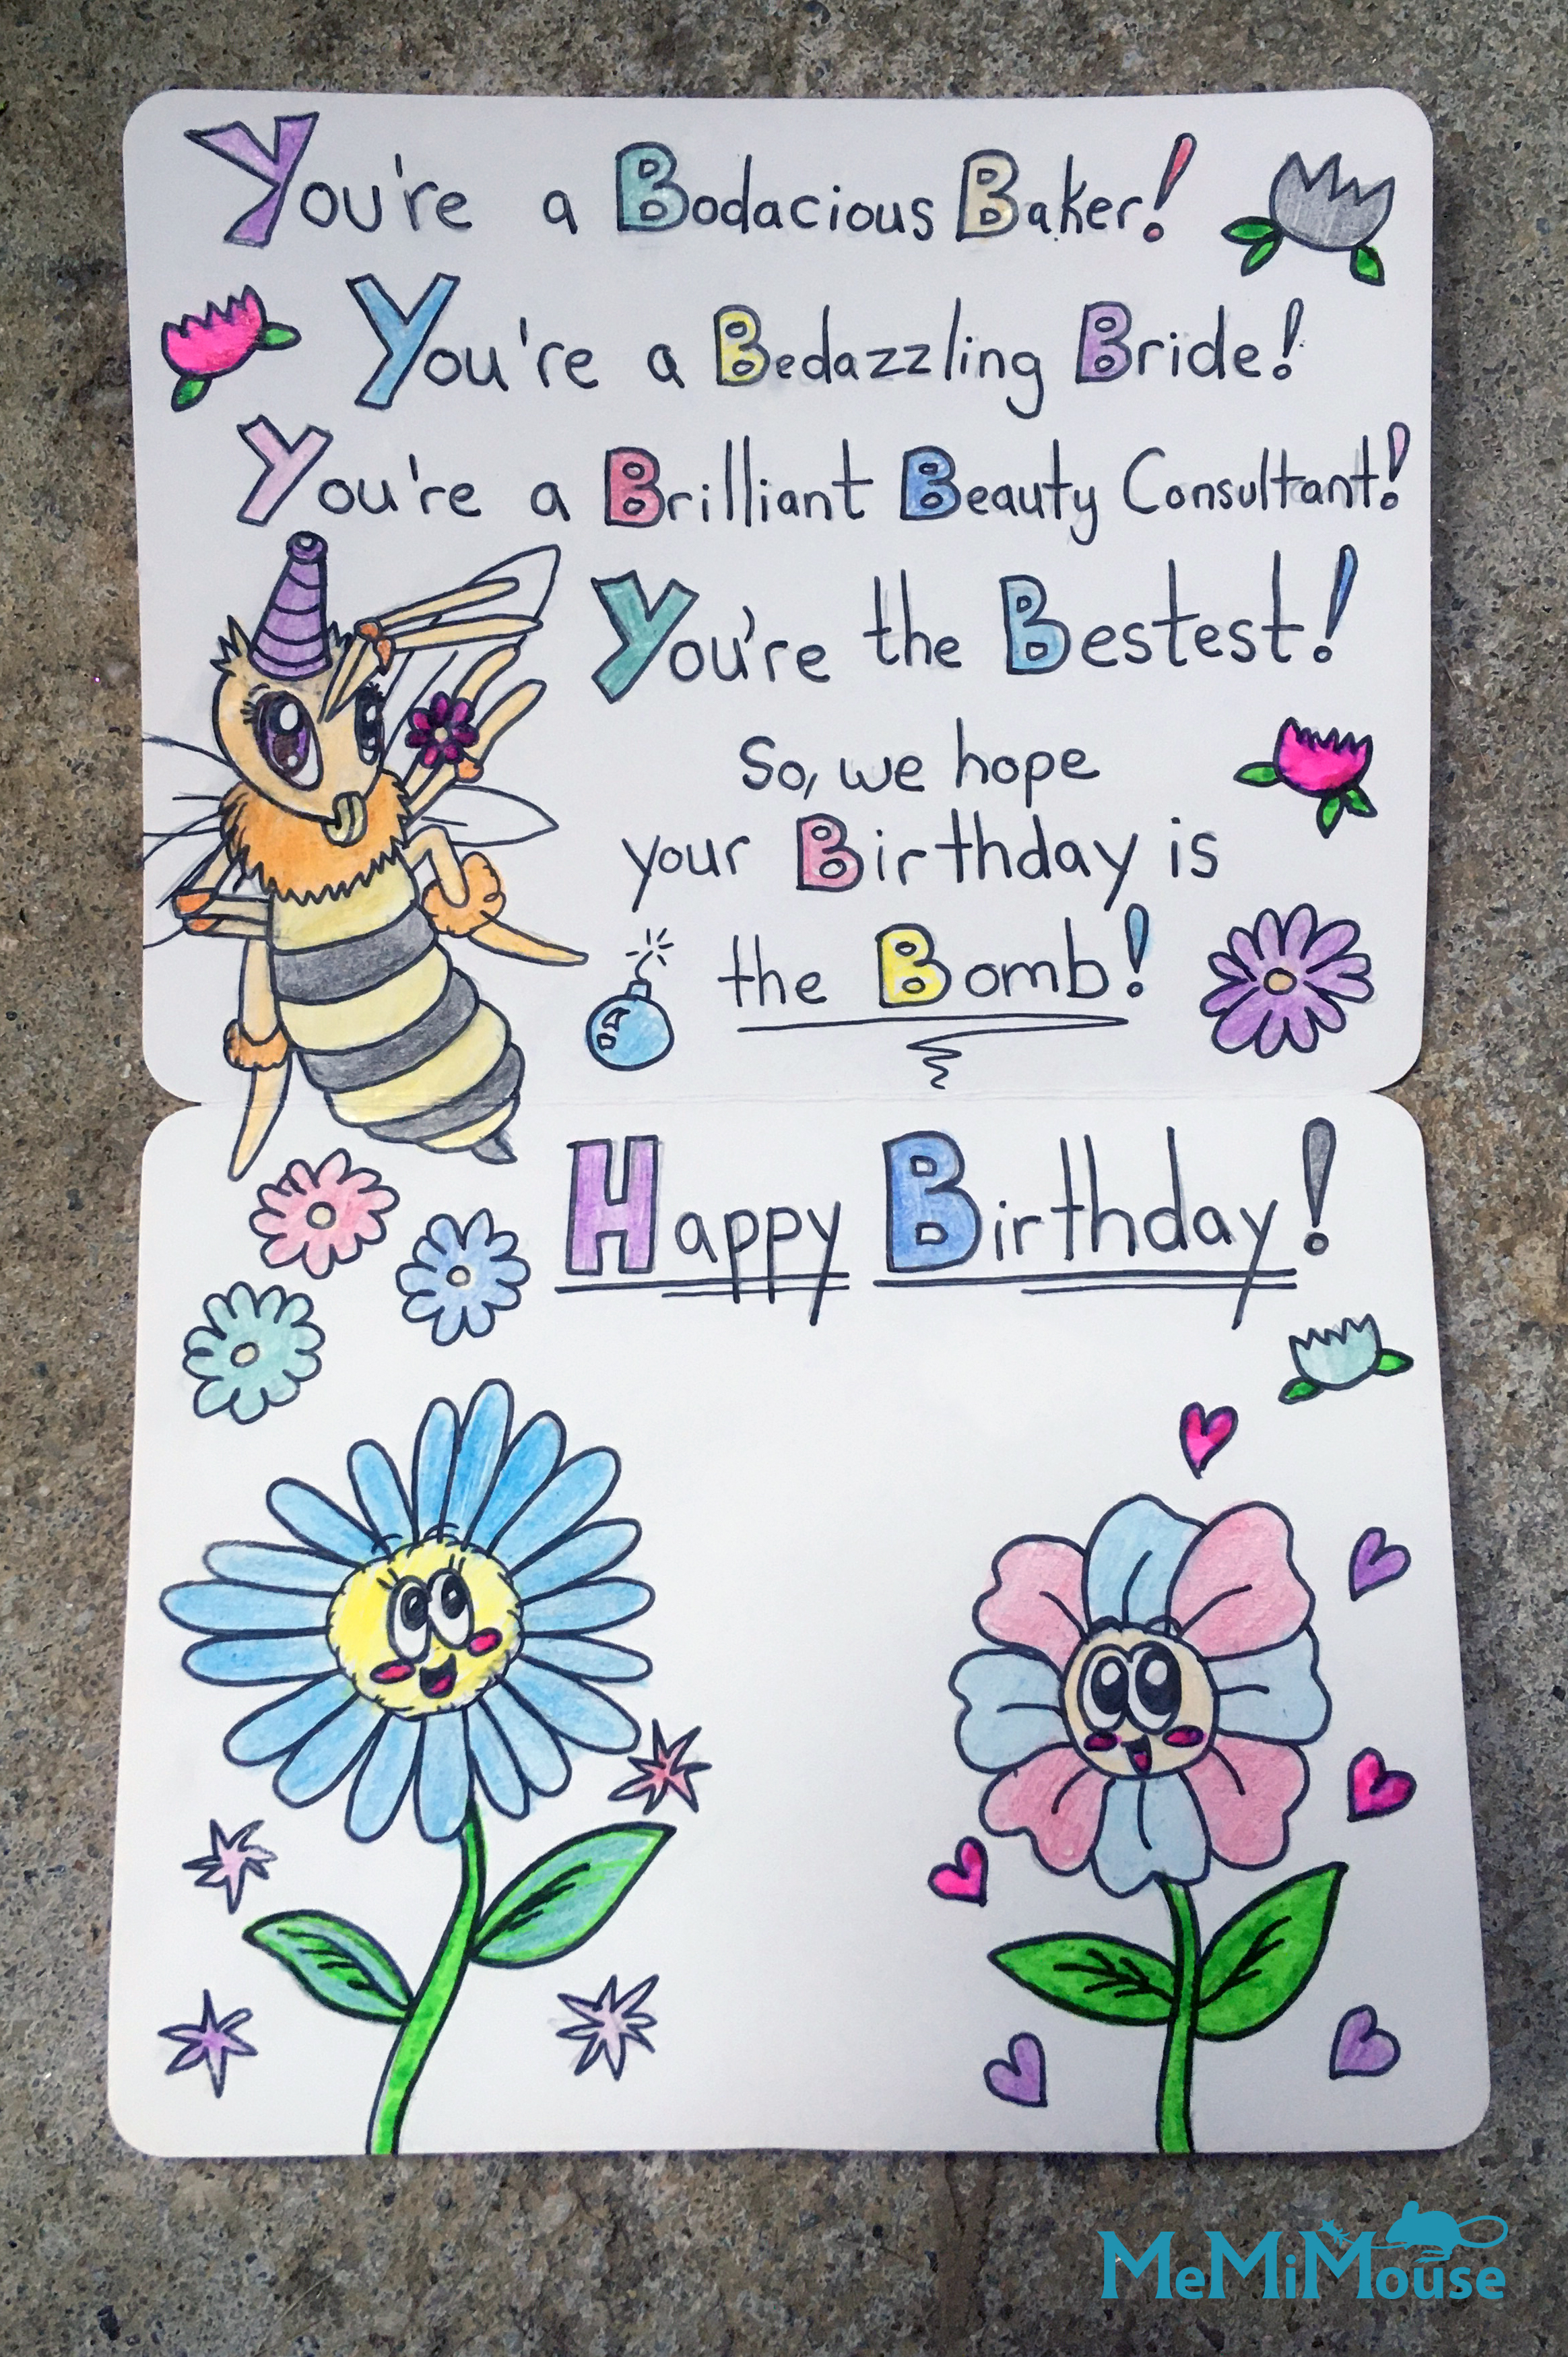 You're a Bodacious Baker!
You're a Bedazzling Bride!
You're a Brilliant Beauty Consultant!
You're the Bestest!
So, we hope
your Birthday is
the Bomb!
Happy Birthday!
MeMiMouse